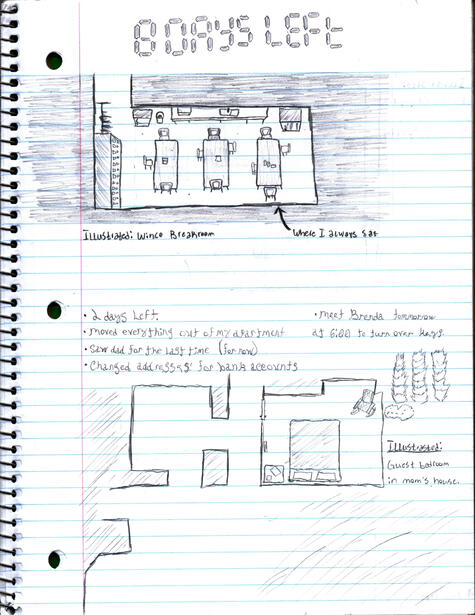 8 DAYS LEFT
Illustrated: Winco Breakroom
Where I always sat
• 2 days Left.
• Moved everything out of my apartment
• Saw dad for the last time (for now)
• Changed addresses for bank accounts
• Meet Brenda tomorrow
at 6:00 to turn over keys.
Illustrated:
Guest bedroom
in mom's house.